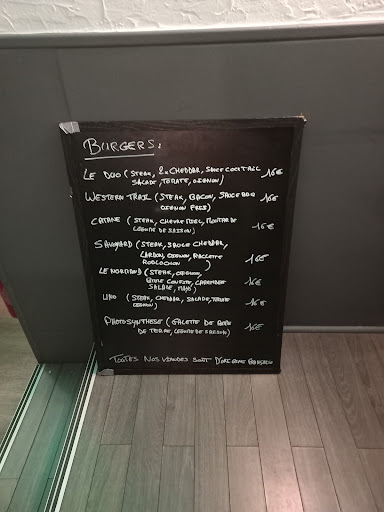 BURGERS:
LE DUO (STEAK, 2x CHEDDAR, SAUCE COCKTAIL 16€
SALADE, TOMATE, OIGNON)
WESTERN TRAIL (STEAK, BACON, SAUCE BBQ 16€
OIGNON FRIS)
CABANE (STEAK, CHEVRE MIEL, MOUTARDE 16€
LÉGUME DE SAISON)
SAVOYARD (STEAK, SAUCE CHEDDAR,
LARDON, OIGNON, RACLETTE 16€
ROBLOCHON)
LE NORMAND (STEAK, OIGNON,
CAMEMBERT 16€
SALADE, MAYO)
(STEAK, CHEDDAR, SALADE, TOMATE 16€
OIGNON)
PHOTOSYNTHESE (GALETTE DE 16€
DE TERRE, LEGUME DE SAISON)
TOUTES NOS VIANDES SONT D'ORIGINE